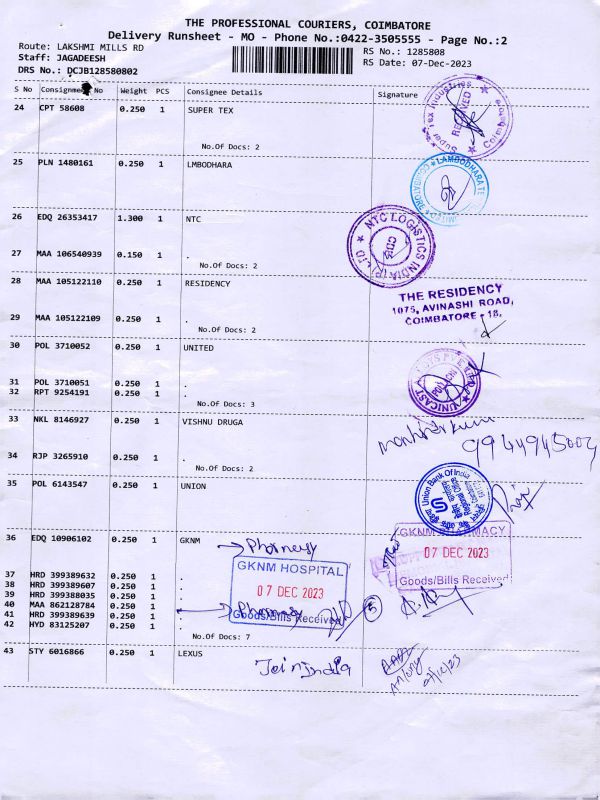 THE PROFESSIONAL COURIERS, COIMBATORE
Delivery Runsheet - MO - Phone No.:0422-3505555 - Page No.:2
Route: LAKSHMI MILLS RD
RS No.: 1285808
Staff: JAGADEESH
RS Date: 07-Dec-2023
DRS No.: DCJB128580802
S No Consignment No Weight PCS Consignee Details Signature
24 CPT 58608 0.250 1 SUPER TEX
No.Of Docs: 2
RECEIVED
25 PLN 1480161 0.250 1 LMBODHARA
26 EDQ 26353417 1.300 1 NTC
NTC LOGISTICS INDIA (P) LTD
27 MAA 106540939 0.150 1 .
No.Of Docs: 2
28 MAA 105122110 0.250 1 RESIDENCY
THE RESIDENCY
1075, AVINASHI ROAD,
COIMBATORE - 18.
29 MAA 105122109 0.250 1 .
No.Of Docs: 2
30 POL 3710052 0.250 1 UNITED
31 POL 3710051 0.250 1 .
32 RPT 9254191 0.250 1 .
No.Of Docs: 3
33 NKL 8146927 0.250 1 VISHNU DRUGA
34 RJP 3265910 0.250 1 .
No.Of Docs: 2
35 POL 6143547 0.250 1 UNION
Union Bank Of India
36 EDQ 10906102 0.250 1 GKNM
GKNM PHARMACY
07 DEC 2023
Goods/Bills Received
37 HRD 399389632 0.250 1 .
38 HRD 399389607 0.250 1 .
39 HRD 399388035 0.250 1 .
40 MAA 862128784 0.250 1 .
41 HRD 399389639 0.250 1 .
42 HYD 83125207 0.250 1 .
GKNM HOSPITAL
07 DEC 2023
Goods/Bills Received
5
No.Of Docs: 7
43 STY 6016866 0.250 1 LEXUS